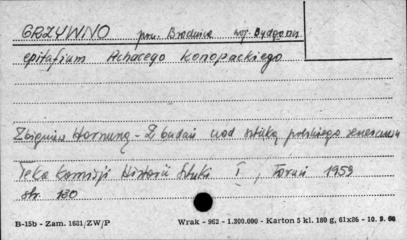 GRZYWNO pow. Brodnica woj. Bydgoszcz
epitafium Achacego Konopackiego
Zbigniew Hornung - Z badań nad sztuką polskiego renesansu
Teka Komisji Historii Sztuki I, Toruń 1959
str. 180
B-15b - Zam. 1621/ZW/P Wrak - 962 - 1.200.000 - Karton 5 kl. 180 g, 61x86 - 10. 9. 60